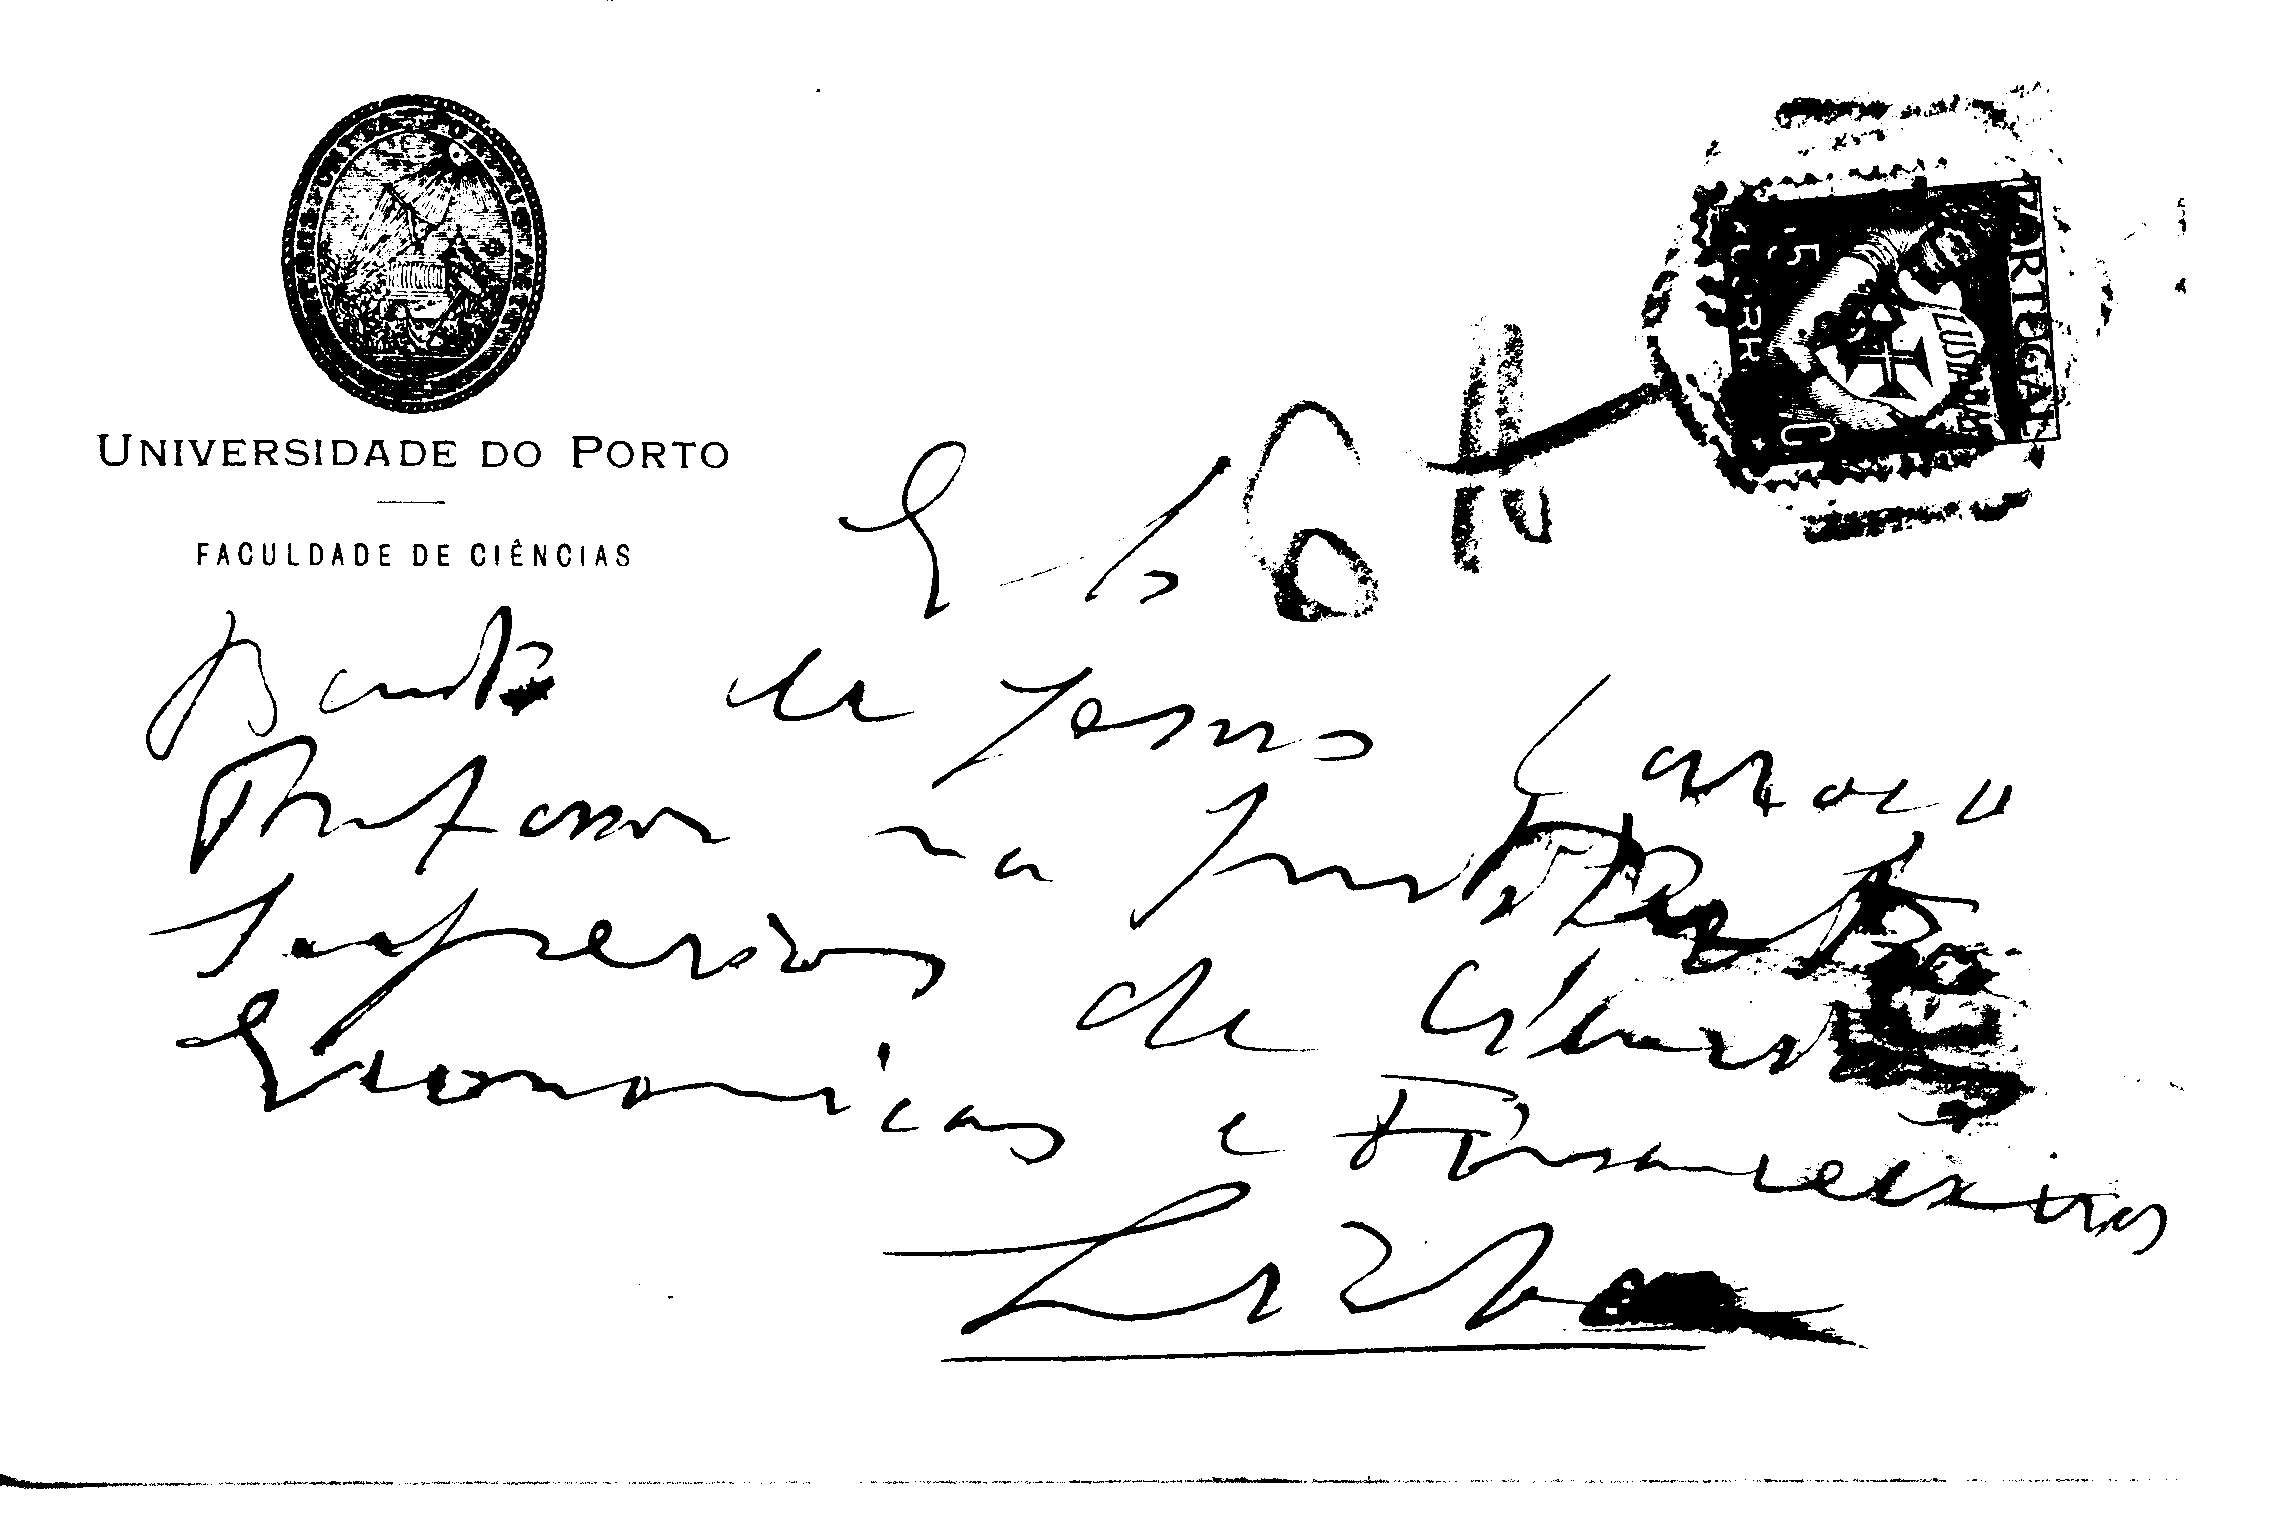 UNIVERSIDADE DO PORTO
FACULDADE DE CIÊNCIAS
PORTUGAL
LUSIADAS
Bento de Jesus Caraça
Professor no Instituto
Superior de Ciencias
Economicas e Financeiras
Lisboa